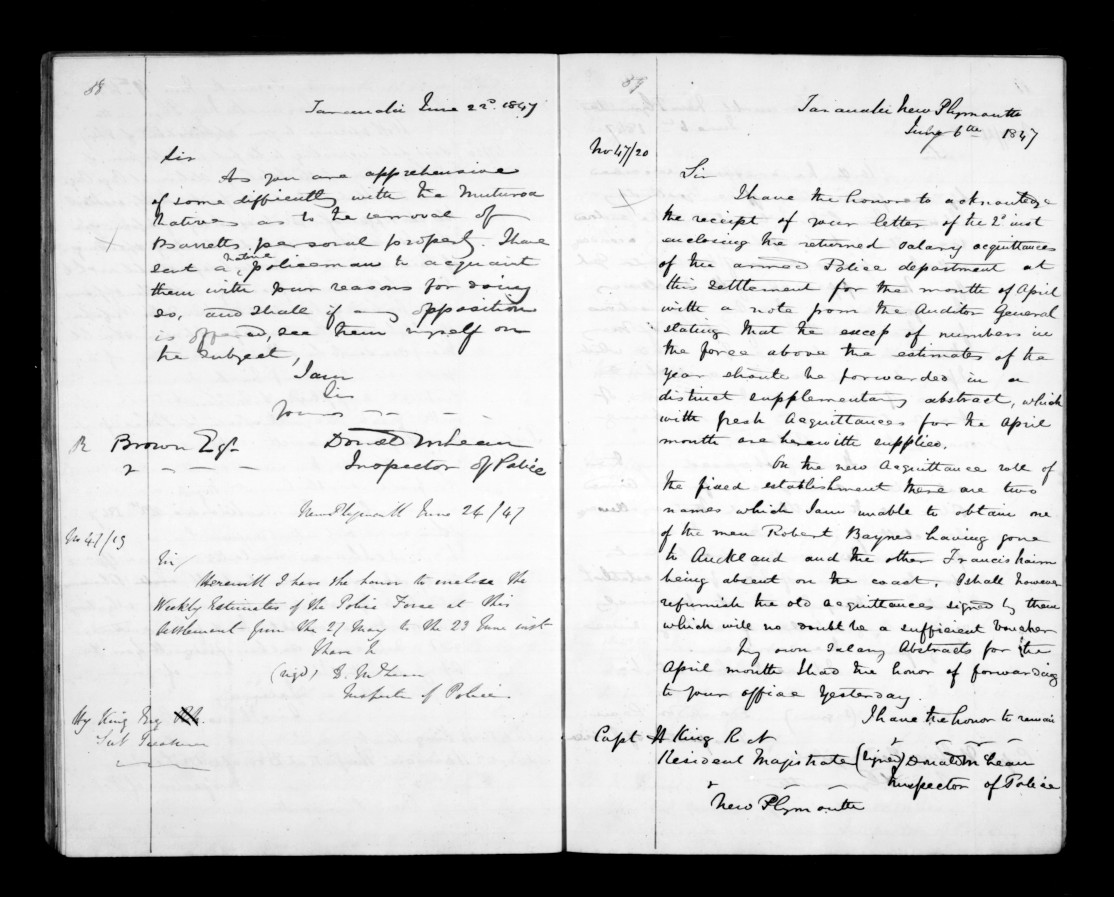 88
Taranaki June 22d. 1847
Sir
As you are apprehensive
of some difficulty with the Muturoa
natives as to the removal of
Barretts personal property. I have
sent a native policeman to acquaint
them with your reasons for doing
so, and shall if any opposition
is offered, see them myself on
the subject,
I am
Sir
Yours
R Brown Esqr
Donald McLean
Inspector of Police
New Plymouth June 24/47
No 47/19
Sir/
Herewith I have the honor to enclose the
Weekly Estimates of the Police Force at this
Settlement from the 27 May to the 23 June inst
I have &c
(sigd) D. McLean
Inspector of Police
Hy King Esq R.N.
Sub Treasurer
89
Taranaki New Plymouth
July 6th 1847
No 47/20
Sir
I have the honor to acknowledge
the receipt of your letter of the 2d inst
enclosing the returned salary acquittances
of the armed Police department at
this settlement for the month of April
with a note from the Auditor General
stating that the excess of numbers in
the force above the estimates of the
year should be forwarded in a
distinct supplementary abstract, which
with fresh acquittances for the April
month are herewith supplied.
On the new acquittance roll of
the fixed establishment there are two
names which I am unable to obtain one
of the men Robert Baynes having gone
to Auckland and the other Francis
being absent on the coast. I shall however
refurnish the old acquittances signed by them
which will no doubt be a sufficient voucher
My own Salary Abstracts for the
April month I had the honor of forwarding
to your office yesterday.
I have the honor to remain
Capt H King R N
Resident Magistrate (signed) Donald McLean
Inspector of Police
New Plymouth